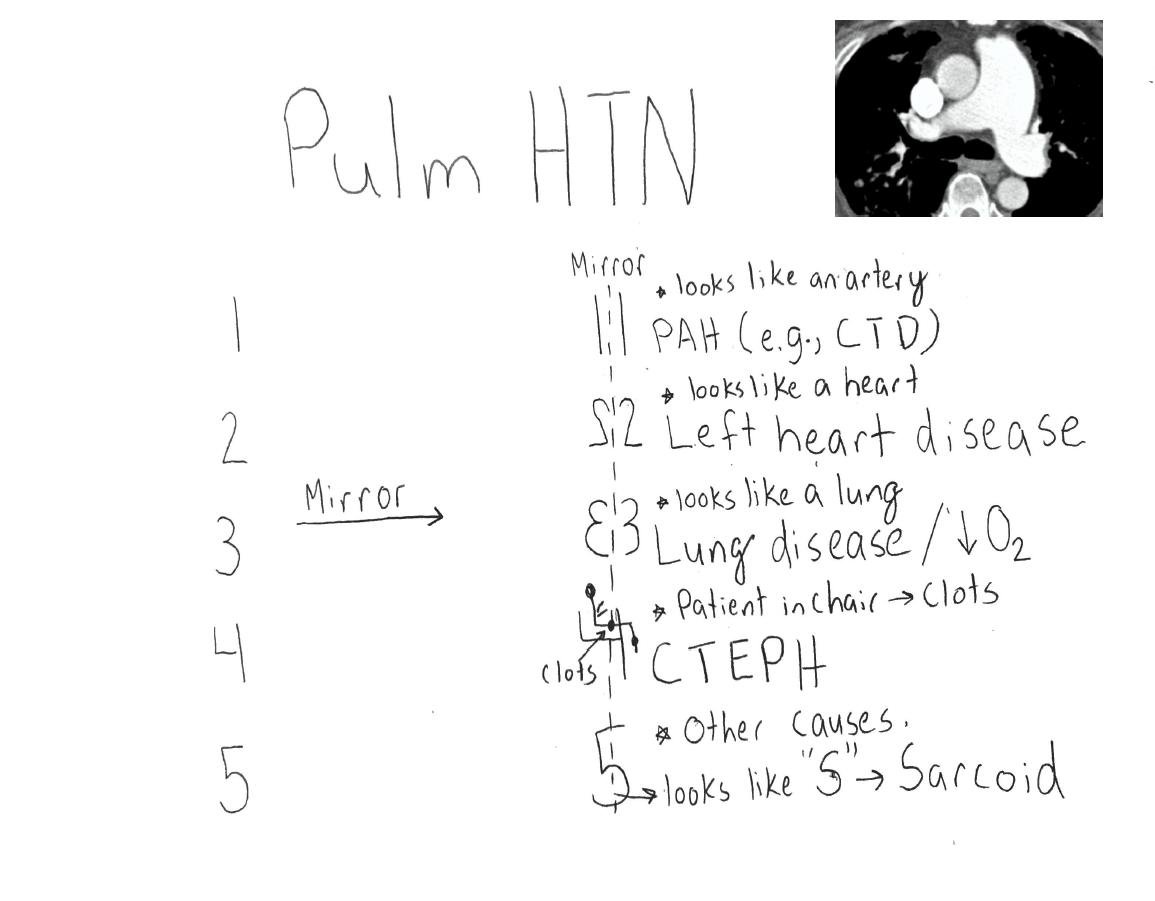 Pulm HTN
Mirror
* looks like an artery
1
11 PAH (e.g., CTD)
* looks like a heart
2
S2 Left heart disease
Mirror
* looks like a lung
3
Ɛ3 Lung disease / ↓ O₂
* Patient in chair → Clots
4
Clots
CTEPH
* Other causes.
5
5 → looks like "S" → Sarcoid